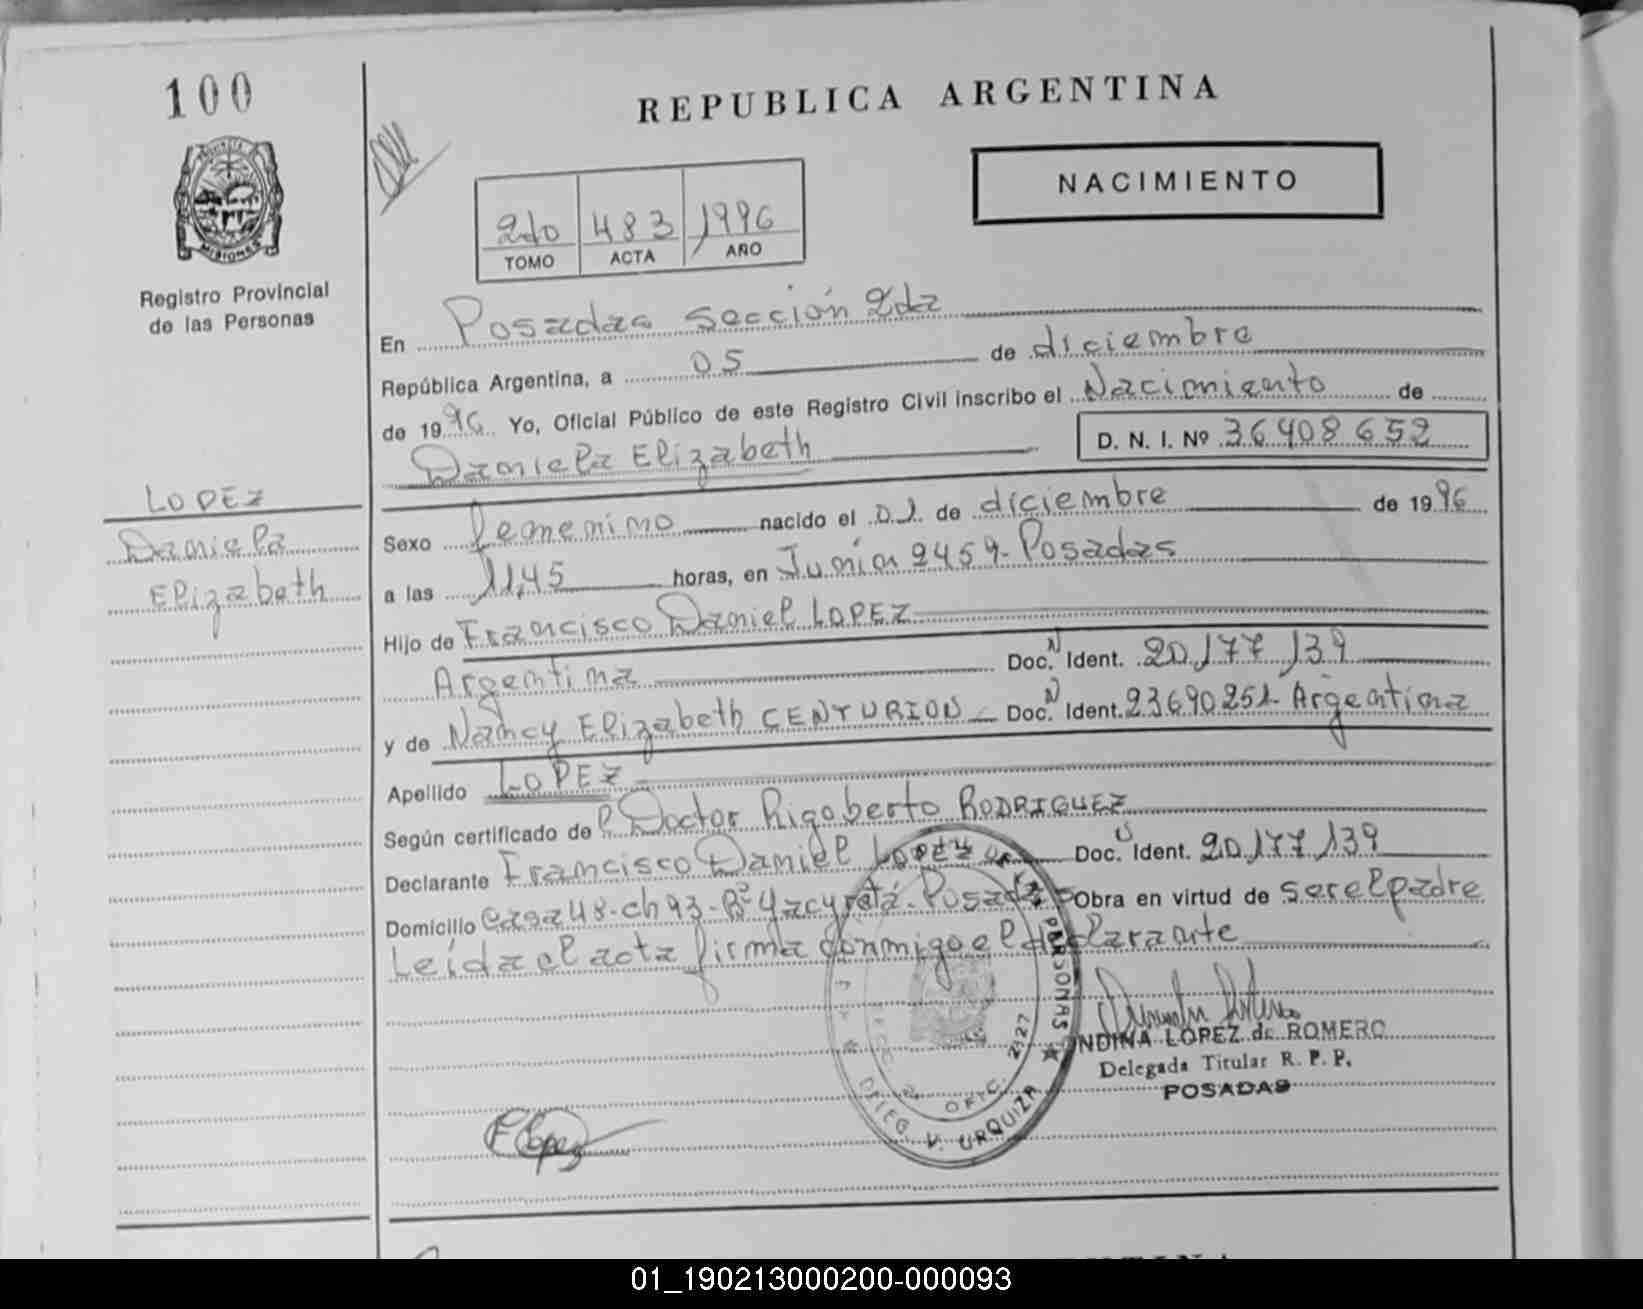 100
REPUBLICA ARGENTINA
NACIMIENTO
MISIONES
Registro Provincial
de las Personas
2do 483 1996
TOMO ACTA AÑO
En Posadas Sección 2da
República Argentina, a 05 de diciembre
de 1996 Yo, Oficial Público de este Registro Civil inscribo el Nacimiento de
Daniela Elizabeth D. N. I. Nº 36408652
LOPEZ
Daniela
Elizabeth
Sexo femenino nacido el 01 de diciembre de 1996
a las 11,45 horas, en Junín 2459- Posadas
Hijo de Francisco Daniel LOPEZ
Argentina Doc. N Ident. 20,177,139
y de Nancy Elizabeth CENTURION Doc. N Ident. 23690251- Argentina
Apellido LOPEZ
Según certificado de l Doctor Rigoberto RODRIGUEZ
Declarante Francisco Daniel LOPEZ Doc. N Ident. 20,177,139
Domicilio Casa 48-ch 93-Bº Yacyretá-Posadas Obra en virtud de ser el padre
Leída el acta firma conmigo el declarante
PERSONAS
2127
OFIC.
DELEG. V. URQUIZA
NDINA LOPEZ de ROMERO
Delegada Titular R. P. P.
POSADAS
F Lopez
01_190213000200-000093